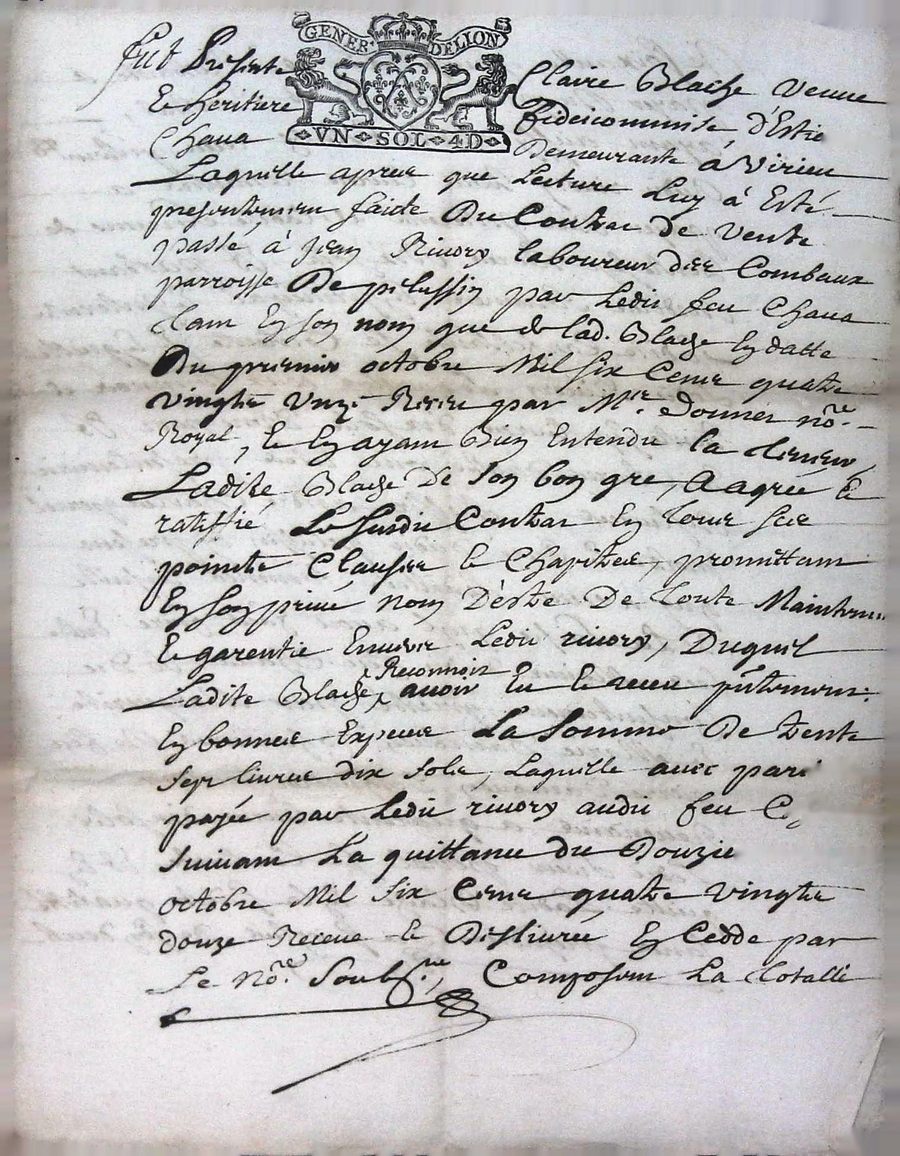 GENER. DELION
VN SOL 4D
fut Presente Claire Blache Veuue
Et heritiere fideicommise d'Estie
Chaua Demeurante à Virieu
Laquelle apres que Lecture Luy à Esté
presentemen faicte Du Contrac de Vente
passé, à Jean Riuory laboureur des Combaux
parroisse De pelussin par Ledit feu Chaua
tam En son nom que de lad. Blache En datte
Du premier octobre Mil six Cens quatre
vingts unze Receu par Mre Donnet nore
Royal, Et En ayam bien Entendu la teneur
Ladite Blache De son bon gre, A agreé Et
ratiffié Le susdit Contrat En tous ses
points Clauses Et Chapitres, promettam
En son priué nom D'estre De toute Maintenue
Et garentie Enuers Ledit riuory, Duquel
Ladite Blache Reconnois auoir Eu Et receu pntement
En bonnes Especes La Somme De trente
sept liures dix sols, Laquelle auec
payée par Ledit riuory audit feu C.
suiuam La quittance du Douzie
octobre Mil six Cens quatre vingts
douze Receue Et Desliurée En Cedde par
Le nore. Soubsne, Composem La totalle